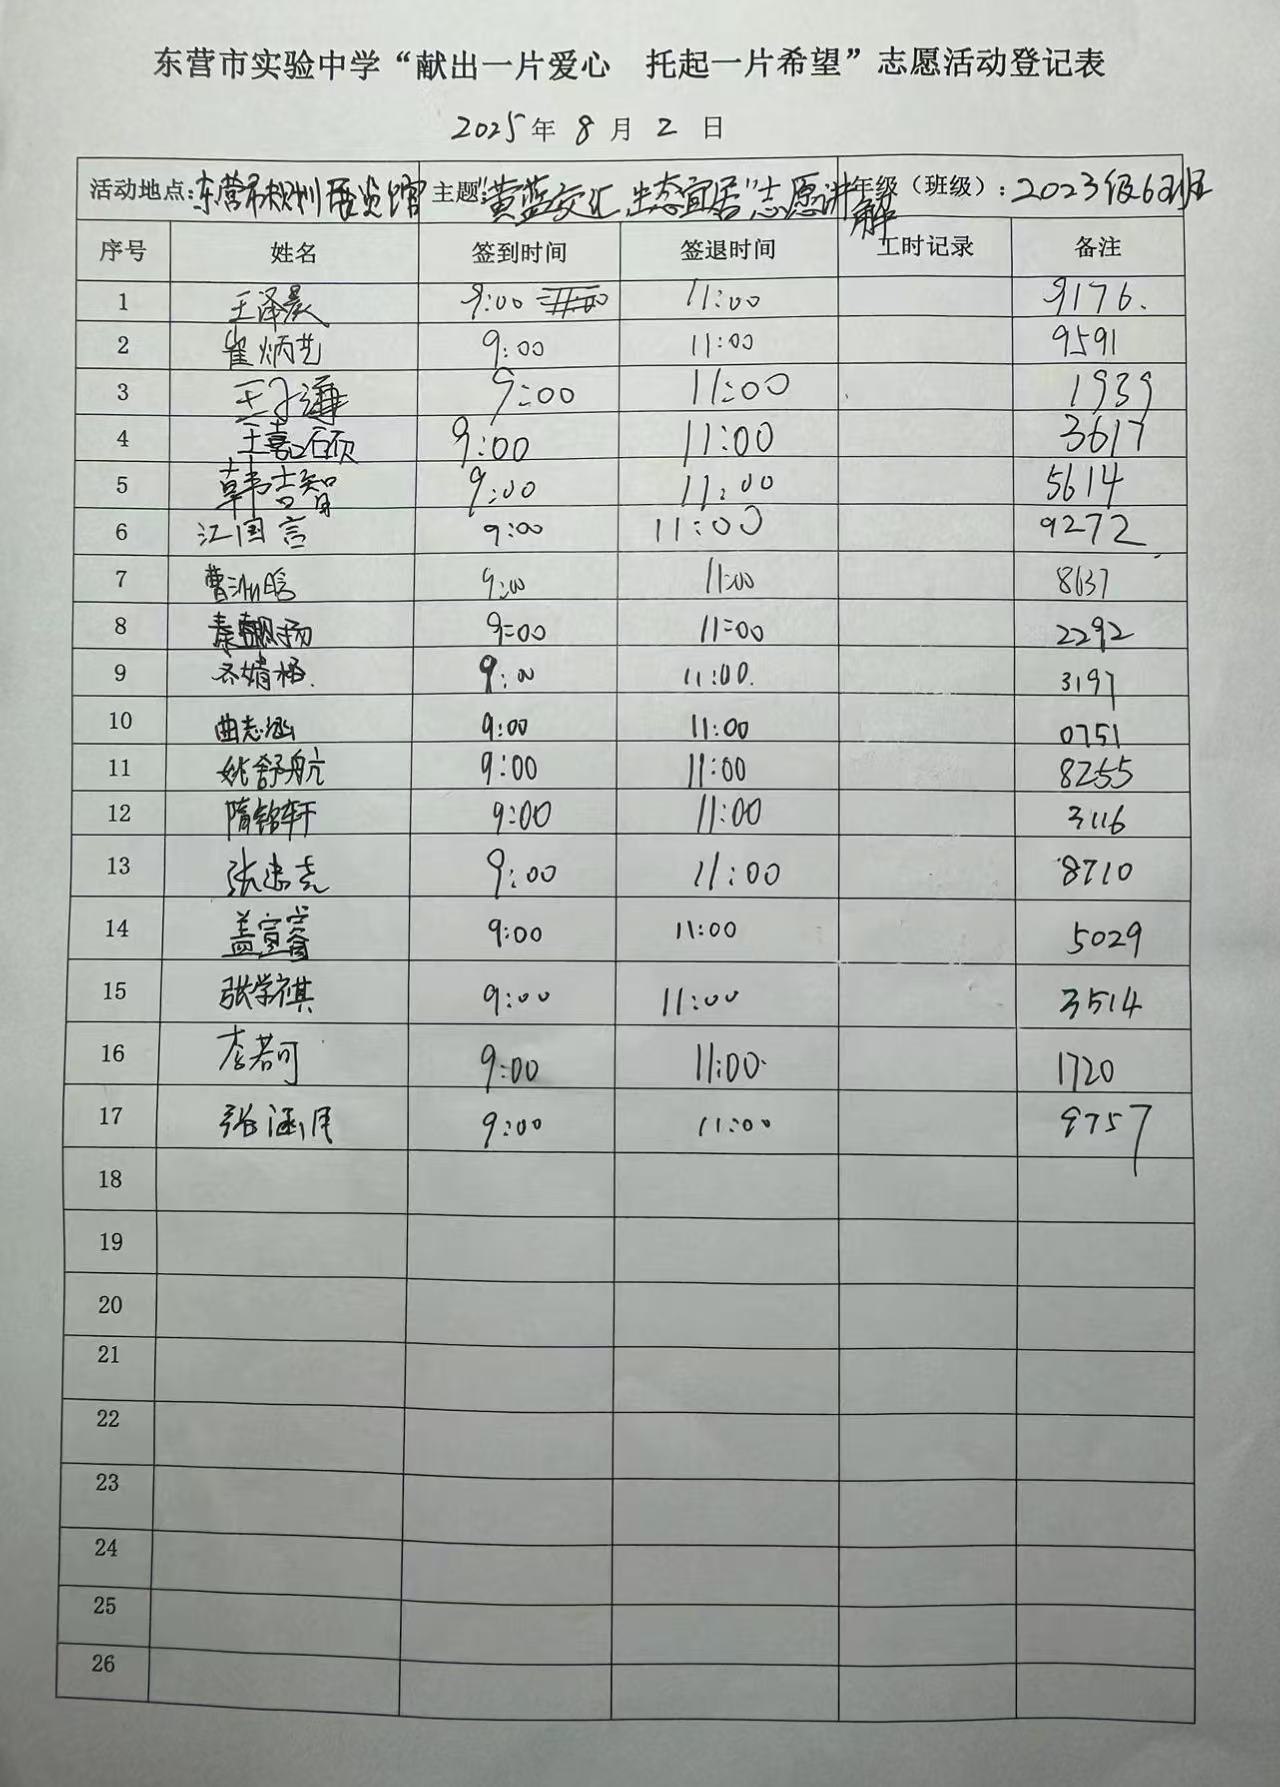 东营市实验中学“献出一片爱心 托起一片希望”志愿活动登记表
2025年 8 月 2 日
活动地点:东营市规划展览馆 主题:“黄蓝交汇 生态宜居”志愿讲解 年级（班级）: 2023级6班
序号 姓名 签到时间 签退时间 工时记录 备注
1 王泽晨 9:00 11:00 9176.
2 崔炳艺 9:00 11:00 9591
3 王子 9:00 11:00 1939
4 王嘉硕 9:00 11:00 3617
5 韩吉智 9:00 11:00 5614
6 江国言 9:00 11:00 9272
7 曹 晗 9:00 11:00 8637
8 秦飘扬 9:00 11:00 2292
9 9:00 11:00. 3197
10 曲志涵 9:00 11:00 0751
11 姚舒航 9:00 11:00 8255
12 隋铭轩 9:00 11:00 3116
13 张 9:00 11:00 8710
14 盖宣睿 9:00 11:00 5029
15 张学祺 9:00 11:00 3514
16 李若可 9:00 11:00. 1720
17 张涵月 9:00 11:00 9757
18
19
20
21
22
23
24
25
26